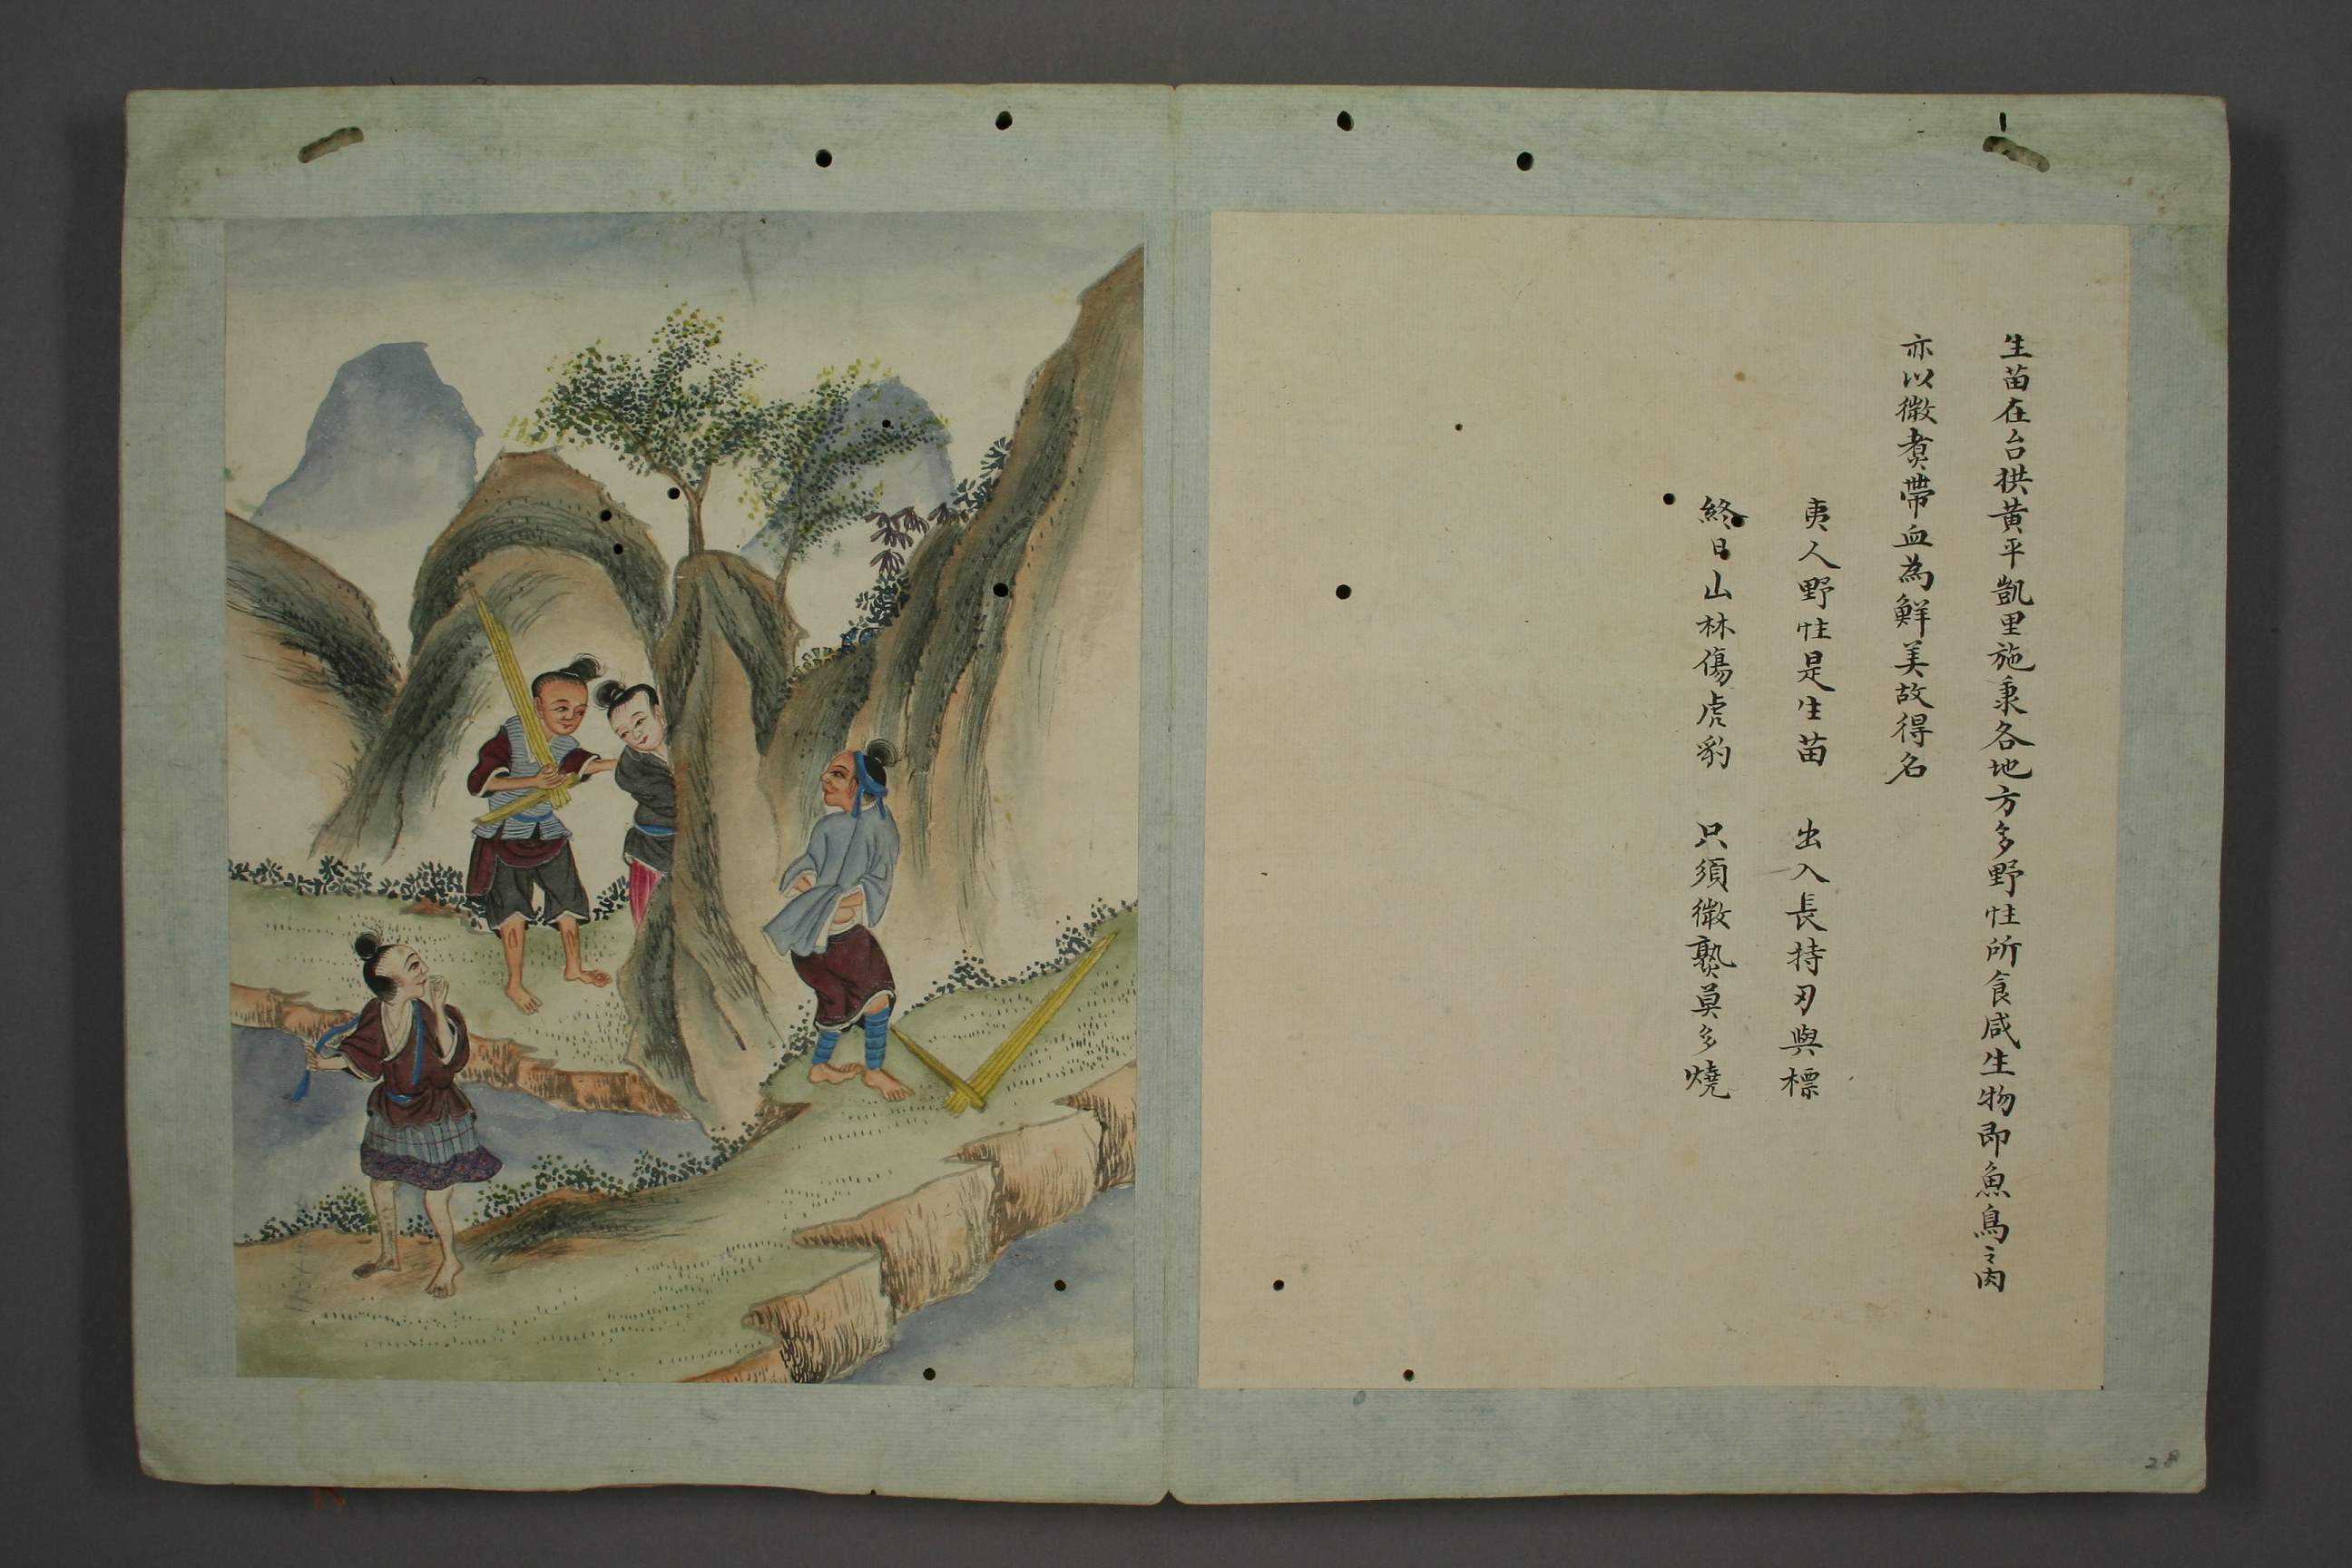 生苗在台拱黃平凱里施秉各地方多野性所食咸生物即魚鳥之肉
亦以微煑帶血為鮮美故得名
夷人野性是生苗　出入長持刃與標
終日山林傷虎豹　只須微熟莫多燒
28